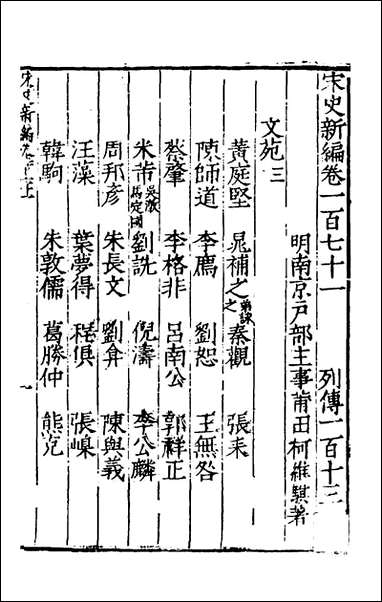 宋史新編卷一百七十一 列傳一百十三
明南京戶部主事莆田柯維騏著
文苑三
黃庭堅 晁補之 弟詠之 秦觀 張耒
陳師道 李廌 劉恕 王無咎
蔡肇 李格非 呂南公 郭祥正
米芾 吳激 馬定國 劉詵 倪濤 李公麟
周邦彥 朱長文 劉弇 陳與義
汪藻 葉夢得 程俱 張嵲
韓駒 朱敦儒 葛勝仲 熊克